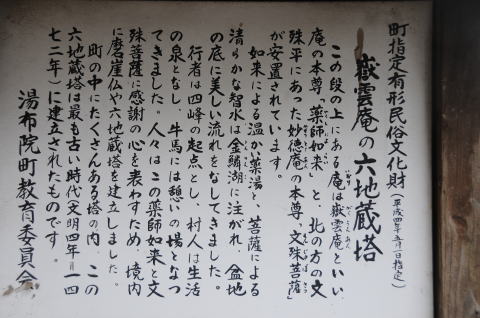 町指定有形民俗文化財(平成四年五月一日指定)
嶽雲庵の六地蔵塔
この段の上にある庵は嶽雲庵といい
庵の本尊「薬師如来」と、北の方の文
殊平にあった妙徳庵の本尊「文殊菩薩」
が安置されています。
如来による温かい薬湯と、菩薩による
清らかな智水は金鱗湖に注がれ、盆地
の底に美しい流れをなしてきました。
行者は四峰の起点とし、村人は生活
の泉となし、牛馬には憩いの場となっ
てきました。人々はこの薬師如来と文
殊菩薩に感謝の心を表わすため、境内
に磨崖仏や六地蔵塔を建立しました。
町の中にたくさんある塔の内、この
六地蔵塔は最も古い時代(文明四年=一四
七二年)に建立されたものです。
湯布院町教育委員会